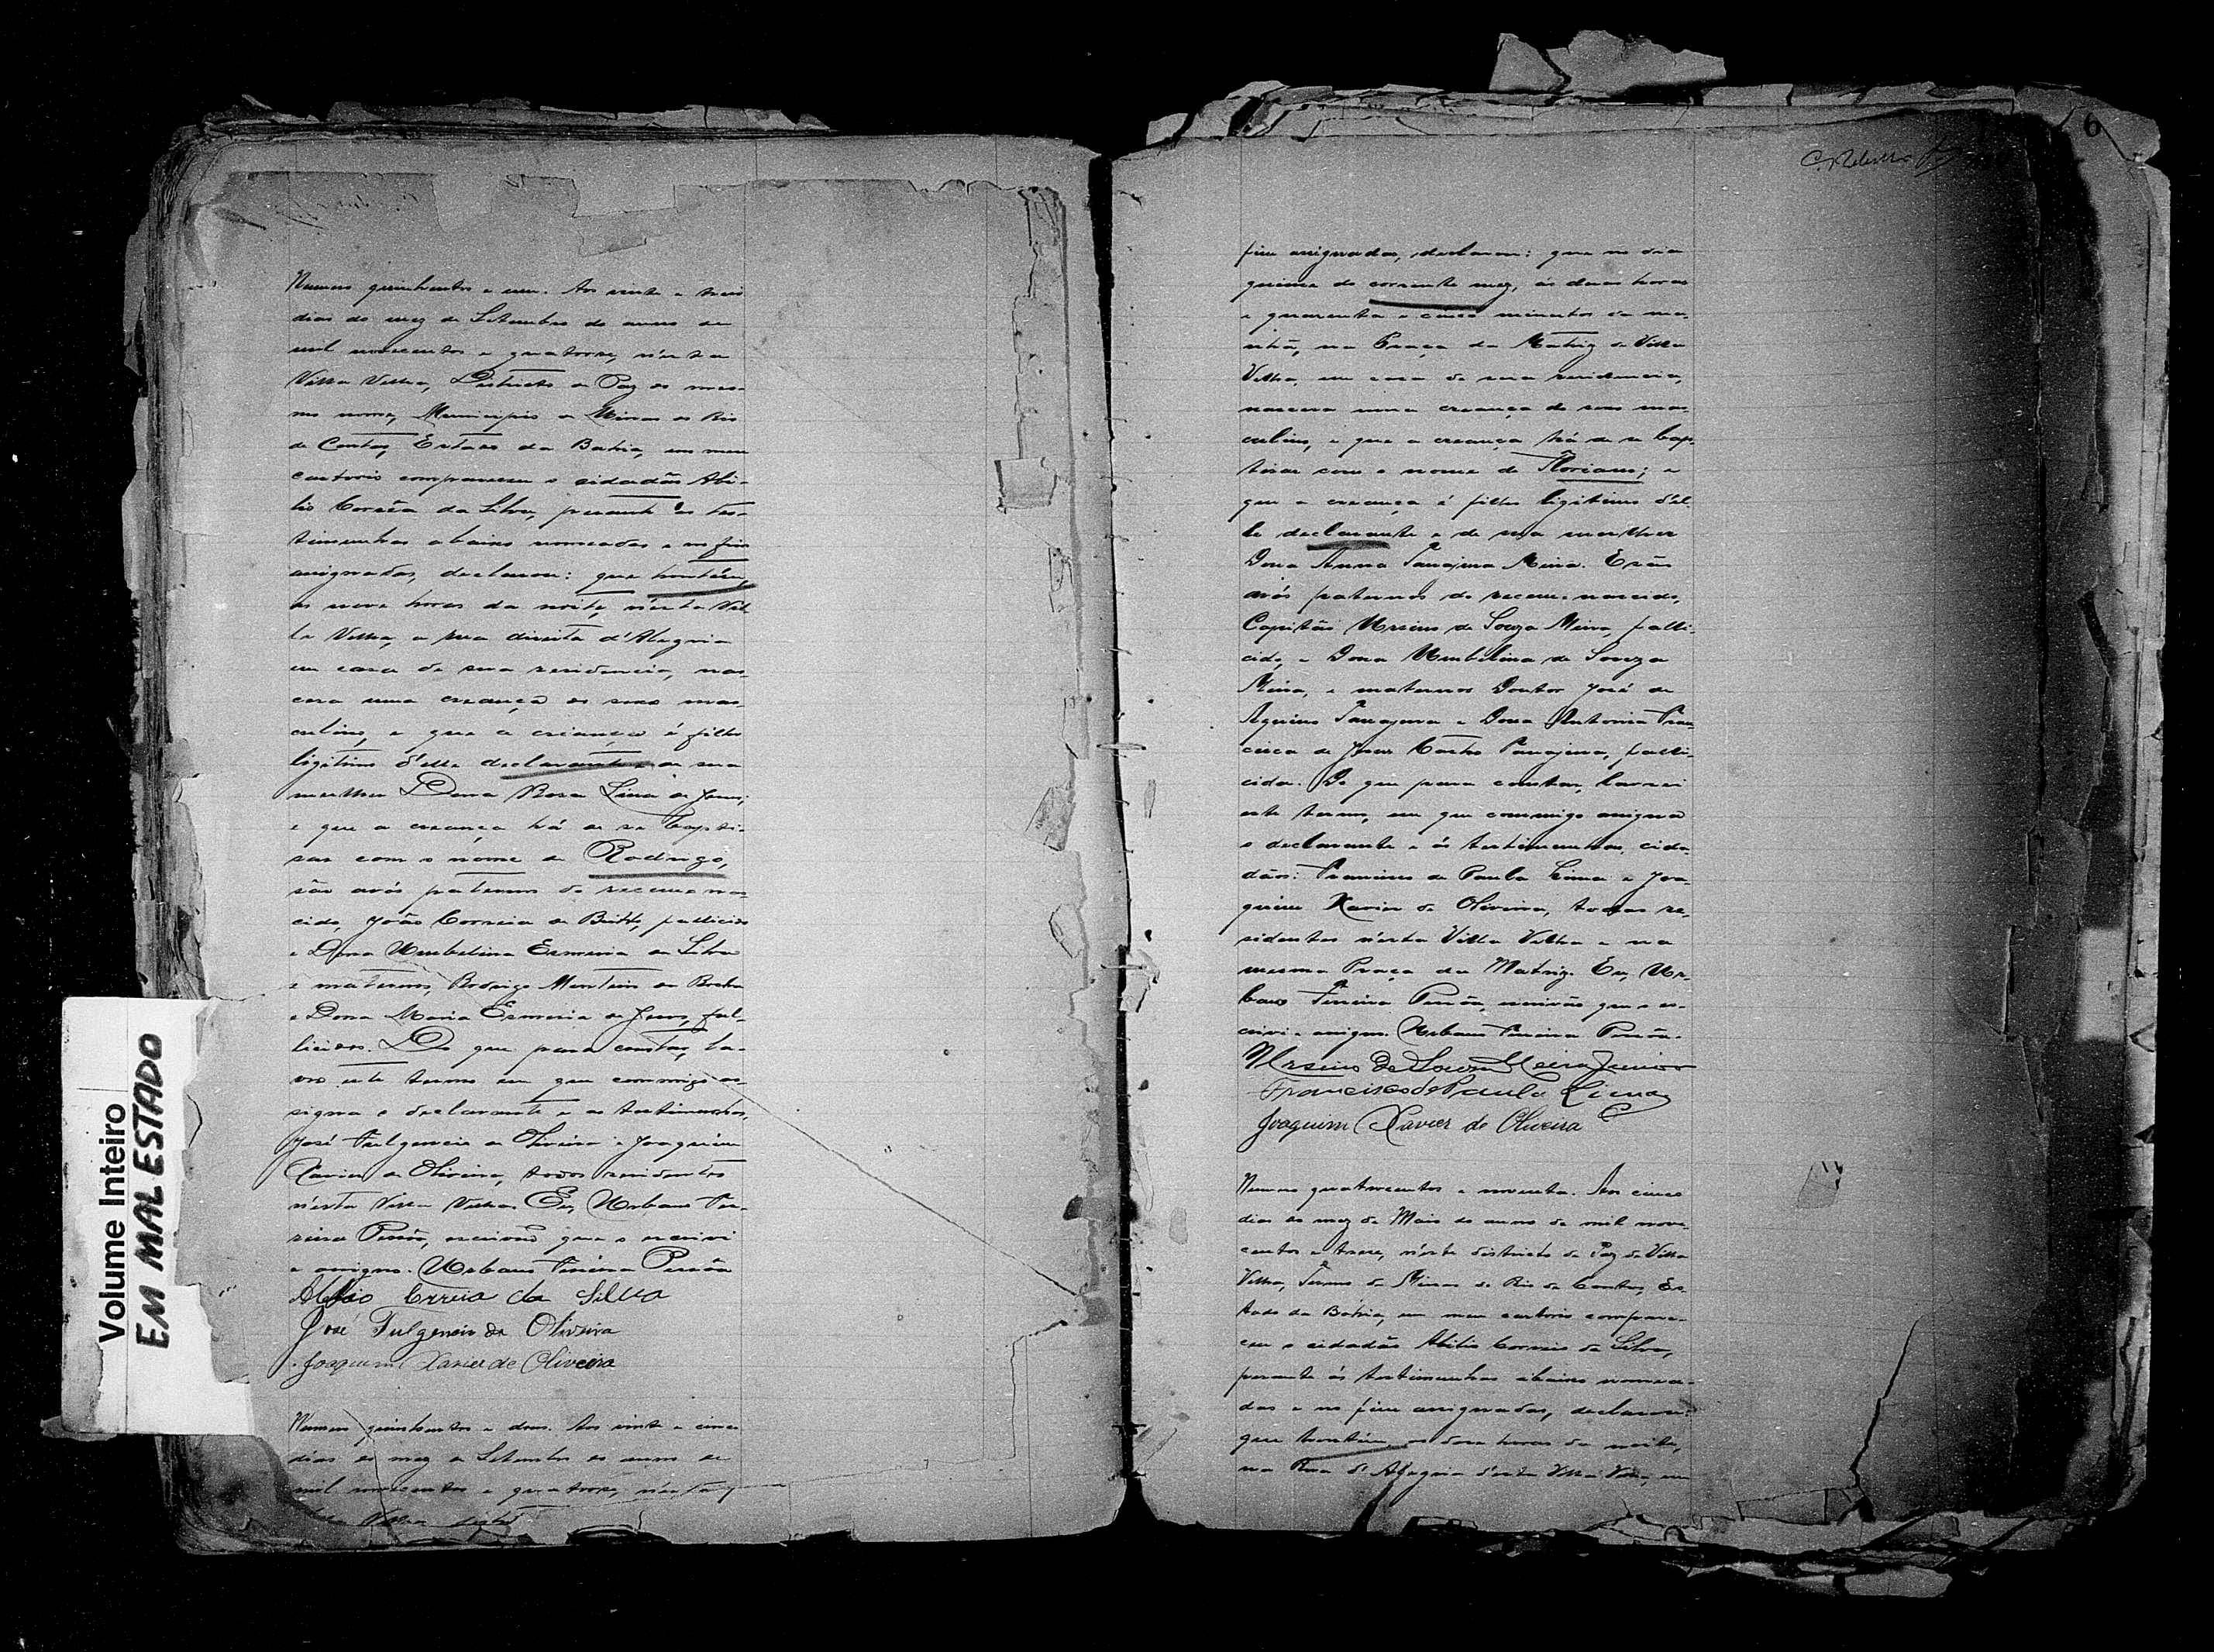 Numero quinhentos e um. Aos vinte e treis
dias do mez de Setembro do anno de
mil novecentos e quatorze, n'esta
Villa Velha, Districto de Paz do mes-
mo nome, Municipio de Minas do Rio
de Contas, Estado da Bahia, em meu
cartorio compareceu o cidadão Abi-
lio Corrêia da Silva, perante as tes-
timunhas abaixo nomeadas e no fim
assignadas, declarou: que hontêm,
as nove horas da noite, n'esta Vil-
la Velha, a rua direita d'Alegria
em casa de sua residencia, nas-
cera uma creança do sexo mas-
culino, e que a criança é filho
ligitimo d'elle declarante e de sua
mulher Dona Rosa Lina de Jesus;
e que a creança há de se bapti-
sar com o nome de Rodrigo,
são avós paternos do recemnas-
cido, João Correia de Britto, fallicido
e Dona Umbelina Esmeria da Silva
e maternos, Rodrigo Monteiro da Rocha
e Dona Maria Esmeria de Jesus, fal-
licidos. Do que para constar, la-
vro este termo em que commigo as-
signa o declarante e as testimunhas,
José Fulgencio de Oliveira e Joaquim
Xavier de Oliveira, todos residentes
n'esta Villa Velha. Eu, Urbano Fer-
reira Pessôa, escrivão que o escrivi
e assigno. Urbano Ferreira Pessôa
Abilio Correia da Silva
José Fulgencio de Oliveira
Joaquim Xavier de Oliveira
Numero quinhentos e dous. Aos vinte e cinco
dias do mez de Setembro do anno de
mil novecentos e quatorze, n'esta
Villa Velha
Volume Inteiro
EM MAL ESTADO
6
fim assignadas, declarou: que no dia
quinze do corrente mez, ás duas horas
e quarenta e cinco minutos da ma-
nhã, na Praça da Matriz da Villa
Velha, em casa de sua residencia,
nascera uma creança do sexo mas-
culino, e que a creança há de se bap-
tisar com o nome de Floriano; e
que a creança é filho ligitimo d'el-
le declarante e de sua mulher
Dona Anna Tanajura Meira. E são
avós paternos do recem-nascido,
Capitão Ursino de Souza Meira, falli-
cido, e Dona Umbelina de Souza
Meira, e maternos Doutor José de
Aquino Tanajura e Dona Antonia Fran-
cisca de Jesus Castro Tanajura, falli-
cidos. Do que para constar, lavrei
este termo, em que commigo assigna
o declarante e ás testimunhas, cida-
dãos: Francisco de Paula Lima e Joa-
quim Xavier de Oliveira, todos re-
sidentes n'esta Villa Velha e na
mesma Praça da Matriz. Eu, Ur-
bano Ferreira Pessôa, escrivão que o es-
crivi e assigno. Urbano Ferreira Pessôa.
Ursino de Souza Meira Junior
Francisco de Paula Lima
Joaquim Xavier de Oliveira
Numero quatrocentos e noventa. Aos cinco
dias do mez de Maio do anno de mil nove-
centos e treze, n'este districto de Paz da Villa
Velha, Termo de Minas do Rio de Contas, Es-
tado da Bahia, em meu cartorio compare-
ceu o cidadão Abilio Correia da Silva,
perante ás testimunhas abaixo nomea-
das e no fim assignadas, declarou:
que hontêm as doze horas da noite,
na Rua d'Alegria d'esta Villa Velha, em